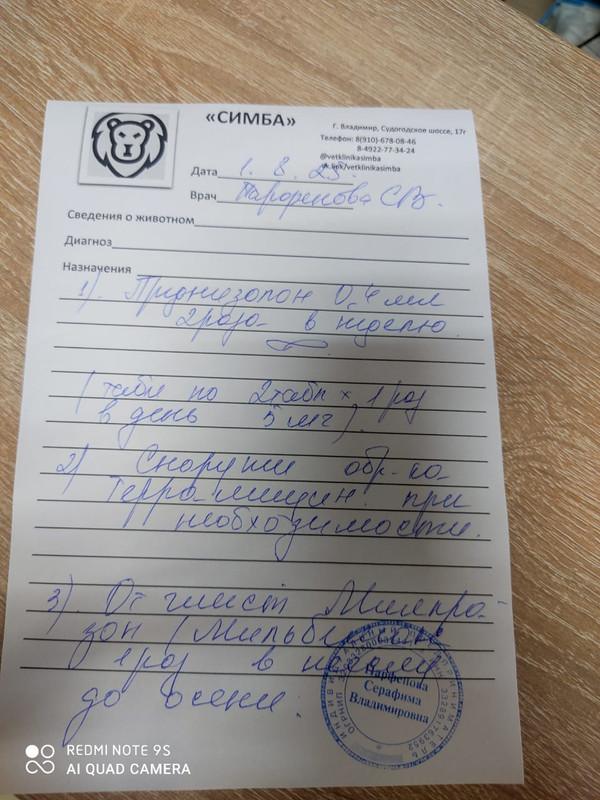 «СИМБА»
Г. Владимир, Судогодское шоссе, 17г
Телефон: 8(910)-678-08-46
8-4922-77-34-24
@vetklinikasimba
vk.link/vetklinikasimba
Дата 1. 8. 25.
Врач Парфенова С.В.
Сведения о животном
Диагноз
Назначения
1). Преднизолон 0,4 мл
2 раза в неделю.
(табл по 2 табл x 1 раз
в день 5 мг).
2) Снаружи обр-ка
Террамицин при
необходимости.
3). От глист Милпра-
зон (Мильбе
1 раз в
до осени.
Парфенова
Серафима
Владимировна
REDMI NOTE 9S
AI QUAD CAMERA